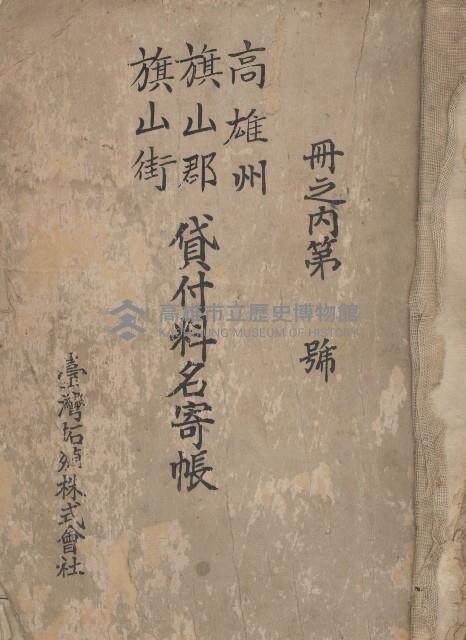 冊之内第 號
高雄州
旗山郡
旗山街
貸付料名寄帳
臺灣拓殖株式會社
高雄市立歷史博物館
KAOHSIUNG MUSEUM OF HISTORY